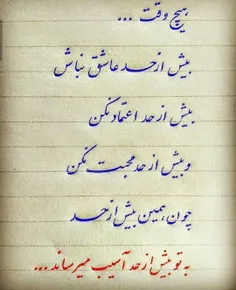 هیچ وقت ...
بیش از حد عاشق نباش
بیش از حد اعتماد نکن
و بیش از حد محبت نکن
چون همین بیش از حد
به تو بیش از حد آسیب میرساند ...